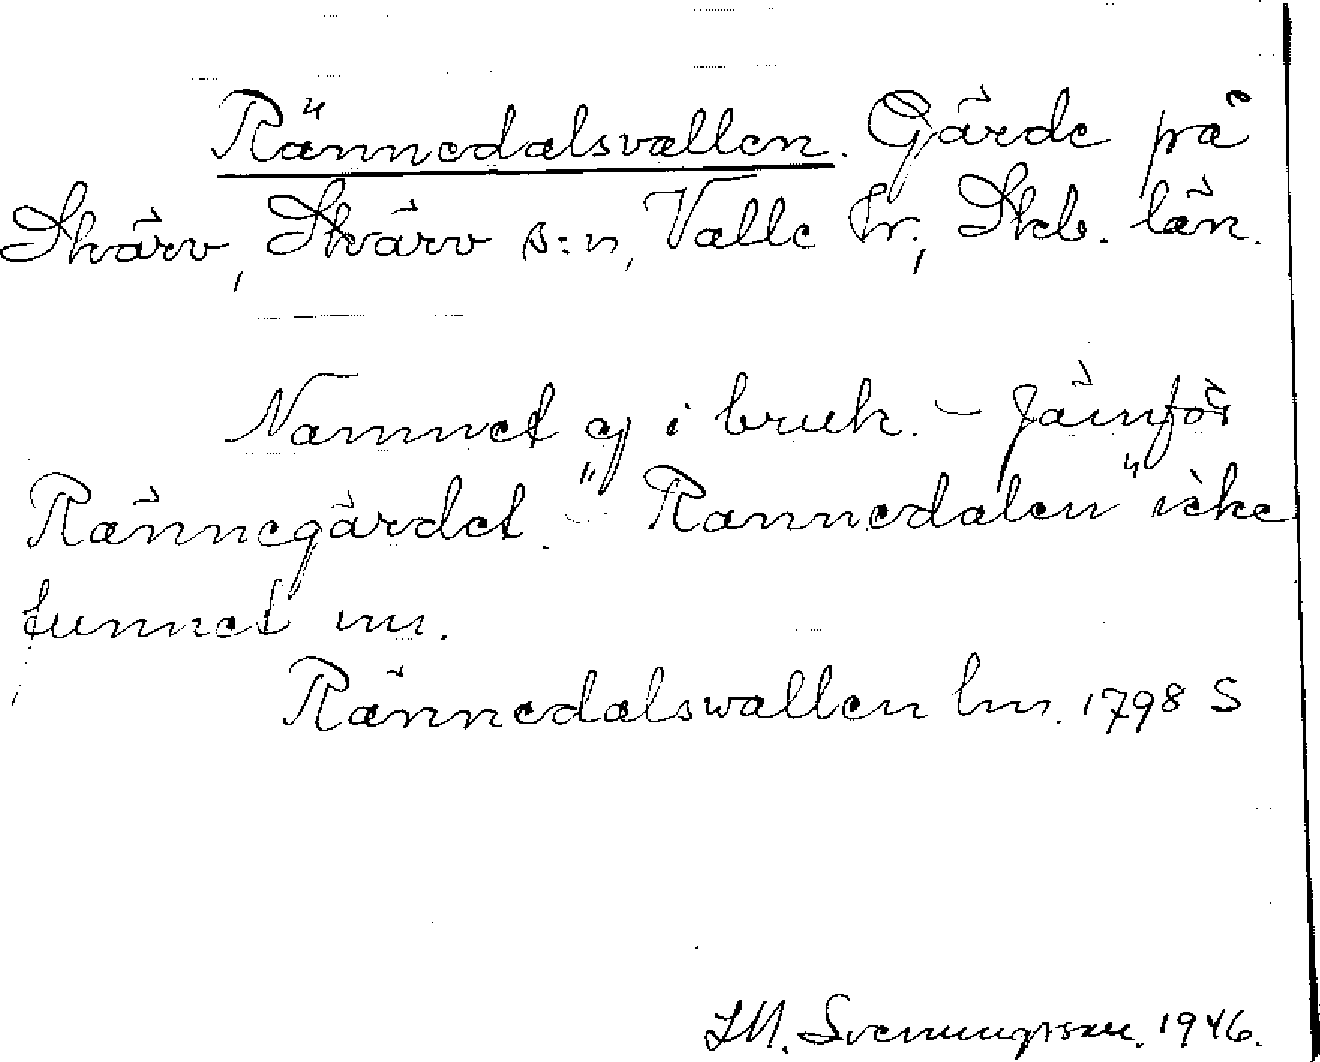 Rännedalsvallen. Gärde på
Skärv, Skärv s:n, Valle hr, Skb. län.
Namnet ej i bruk. - Jämför
Rännegärdet. - "Rannedalen" icke
funnet nu.
Rännedalswallen lm. 1798 S
LM. Svenungsson. 1946.